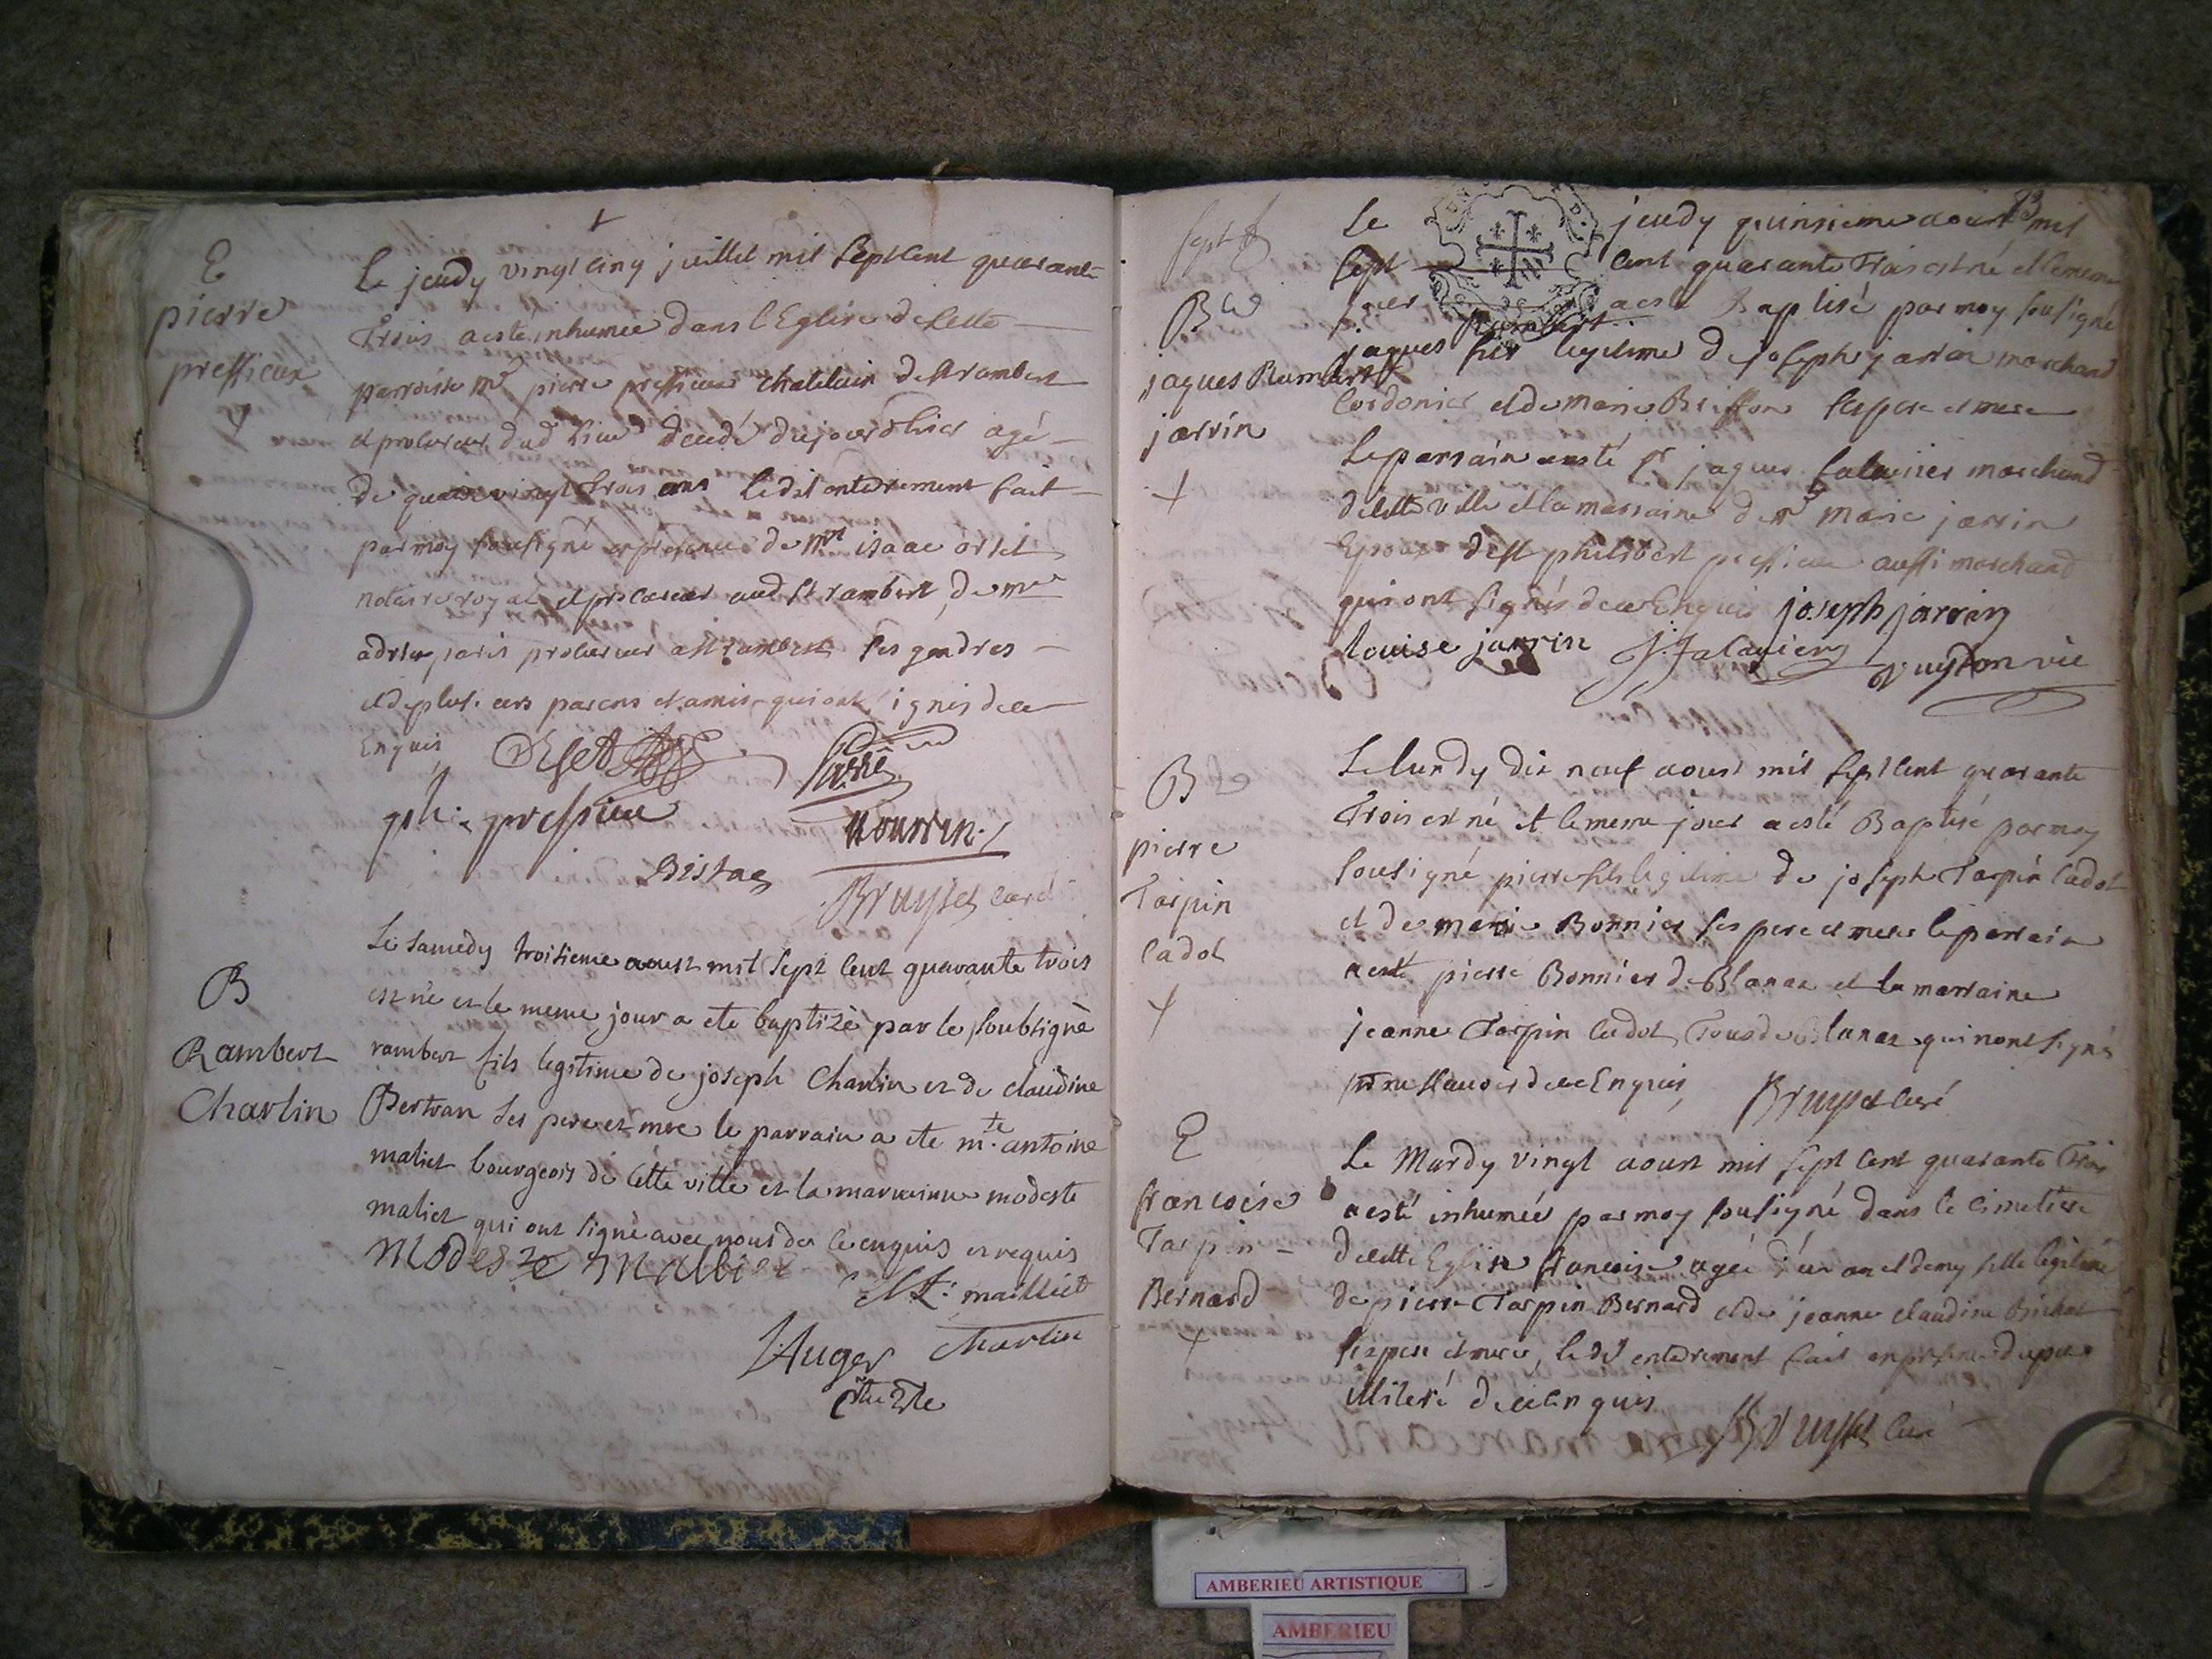 E
pierre
pressieux
Le jeudy vingt cinq juillet mil sept cent quarant-
Trois a esté inhumée dans l'Eglise de Cette
parroisse mr pierre pressieux chatelain de st rambert
et procureur dud lieu decedé du jour d'hier agé
de quatre vingt trois ans ledit enterement fait
par moy sousigné en presence de mre isaac orset
notaire royal et procureur aud st rambert, de mre
adrien paris procureur a st rambert ses gendres
et de plusieurs parens et amis qui ont signés de ce
Enquis
Orset
ph: pressieu
Nourrin
Distae
Bruyset curé
B
Rambert
Charlin
Le samedy troisieme aoust mil sept cent quarante trois
est né et le meme jour a ete baptizé par le soubsigné
rambert fils legitime de joseph Charlin et de claudine
Bertran ses pere et mere le parrain a ete mte. antoine
maliet bourgeois de cette ville et la marrainne modeste
maliet qui ont signé avec nous de ce enquis et requis
Modeste Malliet
At: malliet
Charlin
J Auger
73
sept
B
jaques Rambert
jarrin
Le jeudy quinsieme aoust mil
sept cent quarante Trois est né et le meme
jour a esté Baptisé par moy sousigné
Rambert
jaques fils legitime de joseph jarrin marchand
Cordonier et de marie Brisson ses pere et mere
Le parrain a esté sr jaques falavier marchand
de cette ville et la marraine demlle marie jarrin
Epouse de sr philibert pressieu aussi marchand
qui ont signés de ce Enquis joseph jarrin
louise jarrin J falavier
B
pierre
Tarpin
Cadot
Le lundy dix neuf aoust mil sept cent quarante
Trois est né et le meme jour a esté Baptisé par moy
sousigné pierre fils legitime de joseph Tarpin Cadot
et de marie Bonnier ses pere et mere le parrain
a esté pierre Bonnier de Blanaz et la marraine
jeanne Tarpin Cadot Tous de Blanaz qui n'ont signé
pr ne scavoir de ce Enquis Bruyset curé
E
francoise
Tarpin -
Bernard
Le Mardy vingt aoust mil sept cent quarante Trois
a esté inhumée par moy sousigné dans le Cimetiere
de cette Eglise francoise agée d'un an et demy fille legitime
de pierre Tarpin Bernard et de jeanne claudine Brichat
ses pere et mere, le dit enterement fait en presence du pere
illiteré de ce Enquis
Bruyset Curé
AMBERIEU ARTISTIQUE
AMBERIEU